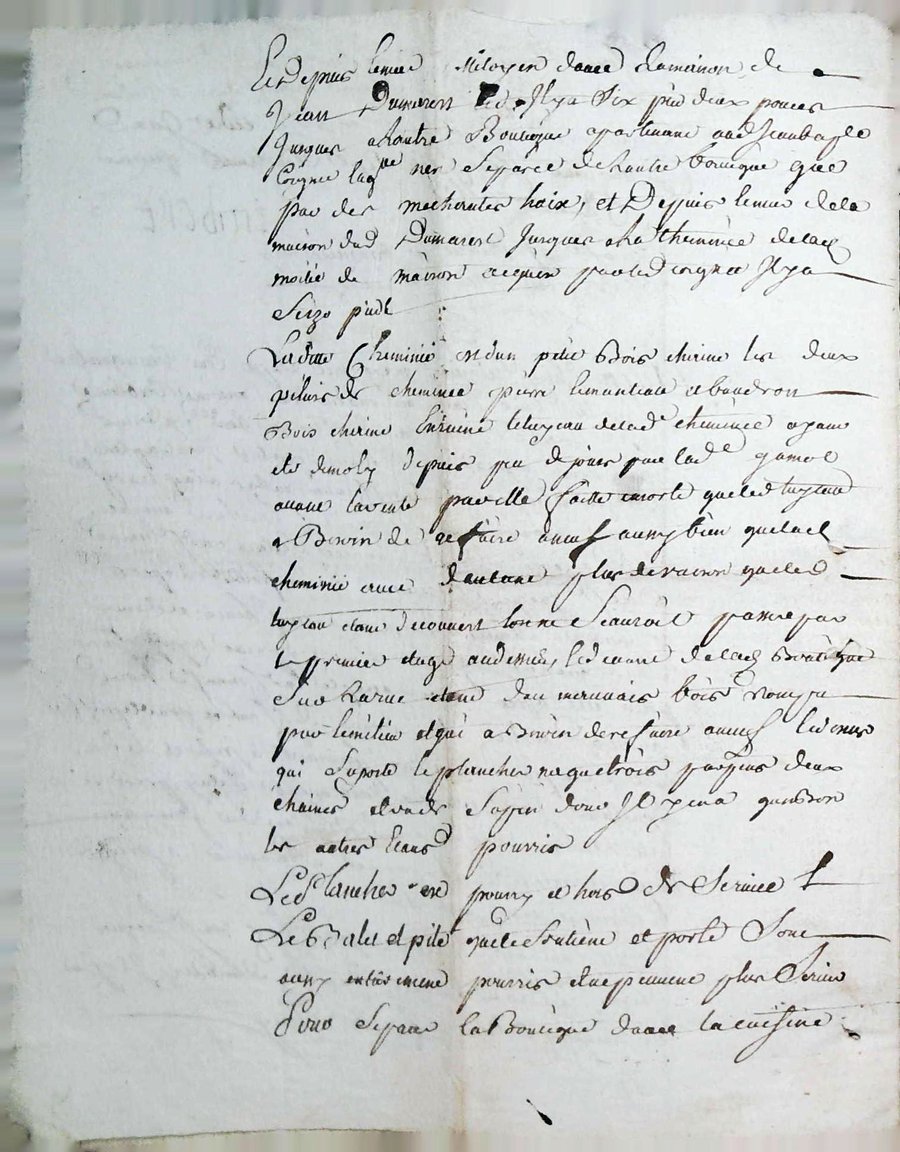 Et Depuis lemur Mitoyen davec la maison de
Jean Dumarest led. Il y a Six pied deux pouces
Jusques a lautre Boutique apartenant aud
Corgnee laq.lle nes Separée de lautre boutique que
par des mechantes haix, et Depuis lemur dela
maison dud Dumarest Jusques a la Cheminée delad
moitié de maison acquise par led corgnee Il y a
Seize pieds
Ladite Cheminée en dun petit Bois chene les deux
piliers de cheminée pierre lemanteau
Bois chene Enruine letuyau delad cheminée ayant
ete demoly Depuis peu de jours par lad.e
avant lavente par elle faitte ensorte queled tuyeau
a Besoin de refaire aneuf aussy bien quelad
cheminée avec dautant plus deraison queled
tuyeau etant decouvert lonne Scauroit passer par
le premier etage audessus, led delad Boutique
Sur larue etant du mauvais bois rompu
par lemilieu et qui a Besoin derefaire aneuf led
qui Suporte leplancher na que trois deux
chaines et un de Sapin dont Il y en a
les autres etans pourris
Led plancher est pourry et hors de Service
Le et pile quile Soutiene et porte Sont
aussy entierement pourris et nepeuvent plus Servir
Pour Separer la Boutique davec la cuisine